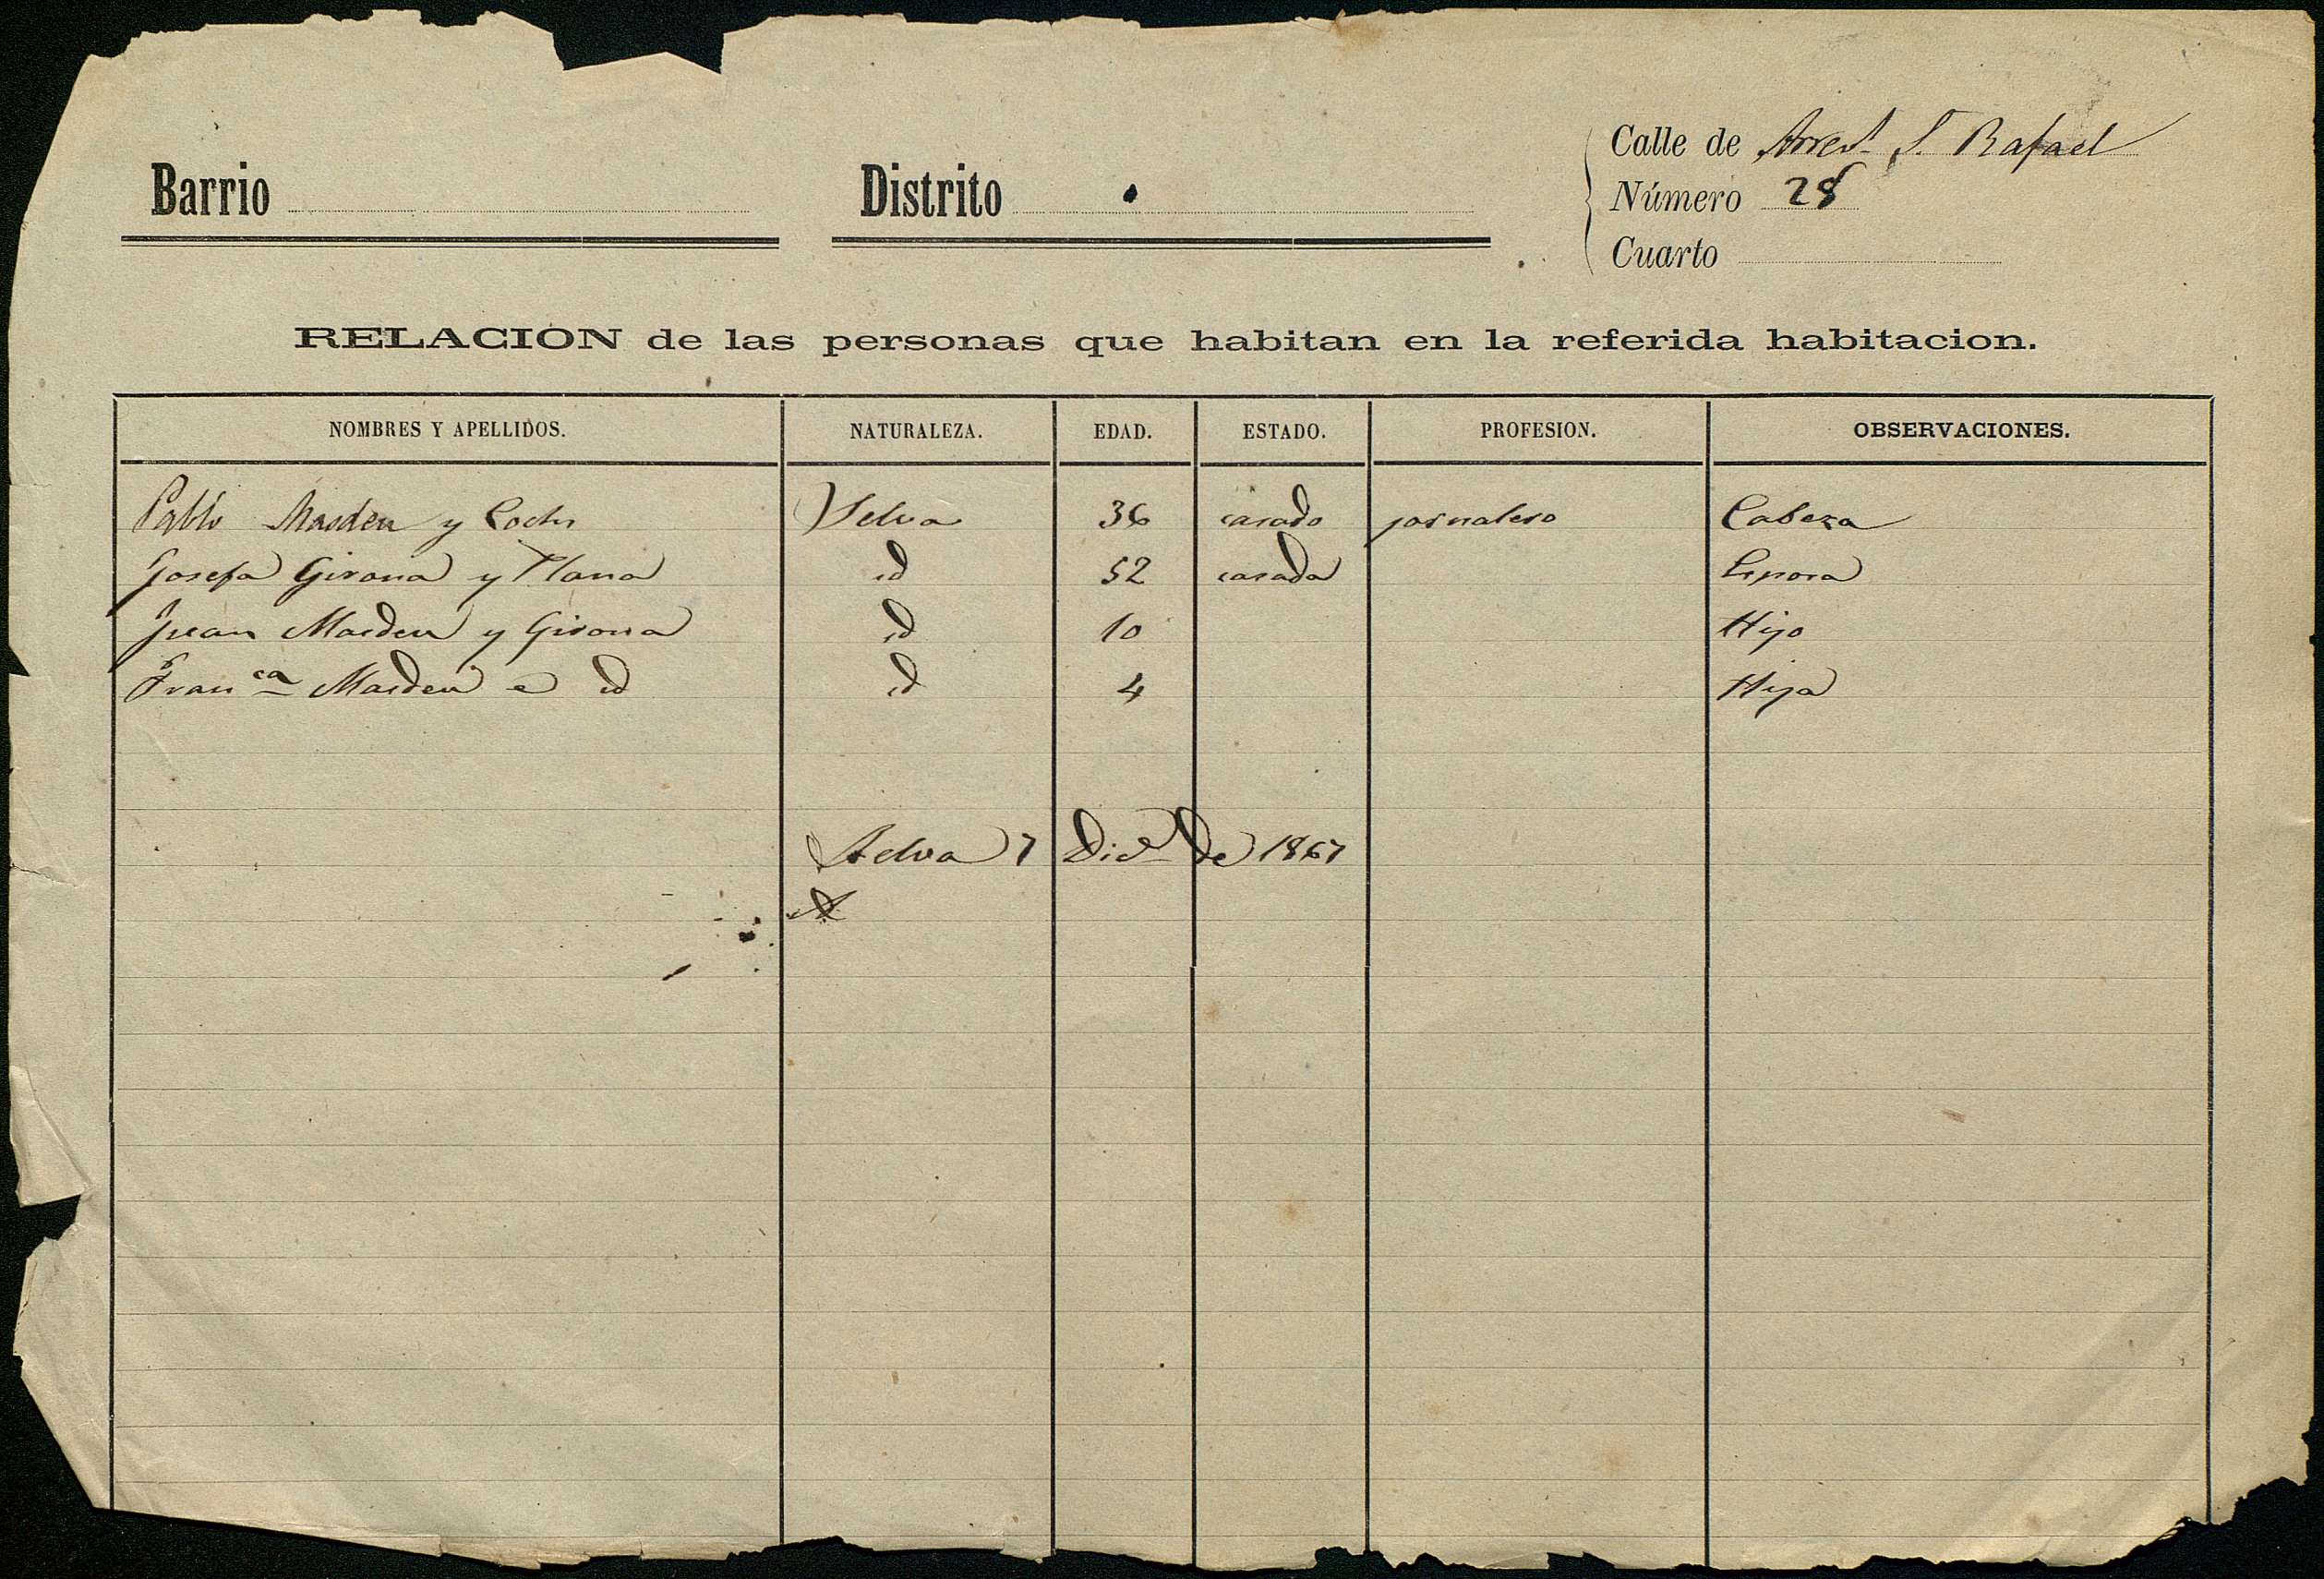 Calle de Arrest S. Rafael
Barrio Distrito Número 28
Cuarto
RELACION de las personas que habitan en la referida habitacion.
NOMBRES Y APELLIDOS. NATURALEZA. EDAD. ESTADO. PROFESION. OBSERVACIONES.
Pablo Masdeu y Selva 36 casado jornalero Cabeza
Josefa Girona y Plana id 52 casada Esposa
Juan Masdeu y Girona id 10 Hijo
Franca Masdeu e id id 4 Hija
Selva 7 Dice de 1867